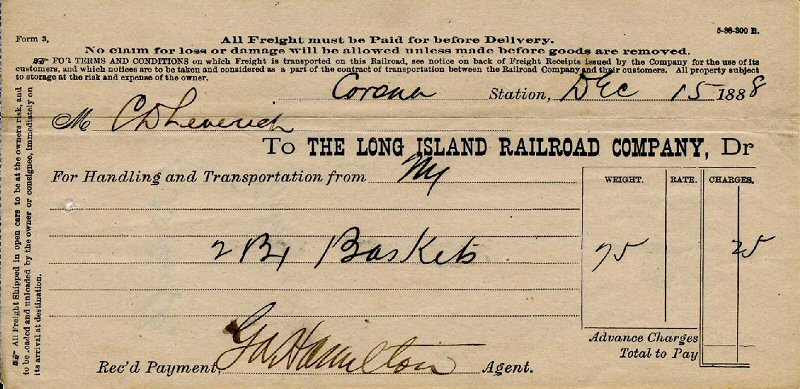 Form 3,
5-38-300 B.
All Freight must be Paid for before Delivery.
No claim for loss or damage will be allowed unless made before goods are removed.
☞ FOR TERMS AND CONDITIONS on which Freight is transported on this Railroad, see notice on back of Freight Receipts issued by the Company for the use of its
customers, and which notices are to be taken and considered as a part of the contract of transportation between the Railroad Company and their customers. All property subject
to storage at the risk and expense of the owner.
Corona Station, Dec 15 1888
M C D Leverich
To THE LONG ISLAND RAILROAD COMPANY, Dr
For Handling and Transportation from NY
WEIGHT. RATE. CHARGES.
2 Baskets 75 25
Advance Charges
Total to Pay
Rec'd Payment, Hamilton Agent.
☞ All Freight Shipped in open cars to be at the owners risk, and
to be loaded and unloaded by the owner or consignee, immediately on
its arrival at destination.